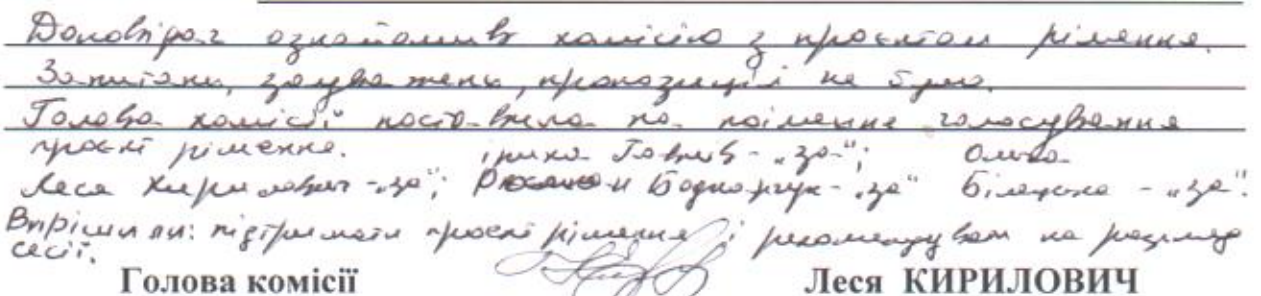 Доповідач ознайомив комісію з проєктом рішення.
Запитань, зауважень, пропозицій не було.
Голова комісії поставила на поіменне голосування
проєкт рішення. Ірина Гаврив - "за"; Ольга
Леся Кирилович - "за"; Роман Боднарчук - "за" Білецька - "за".
Вирішили: підтримати проєкт рішення і рекомендувати на розгляд
сесії.
Голова комісії Леся КИРИЛОВИЧ